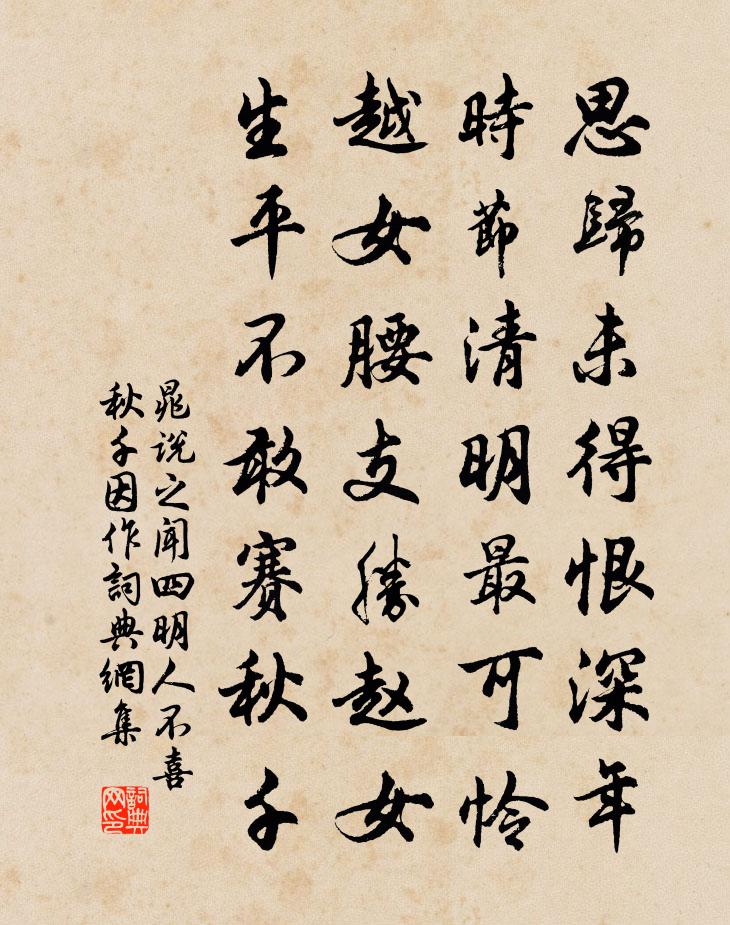 思歸未得恨深年
時節清明最可怜
越女腰支勝赵女
生平不敢賽秋千
晁説之聞四明人不喜
秋千因作詞典網集
詞典
网印